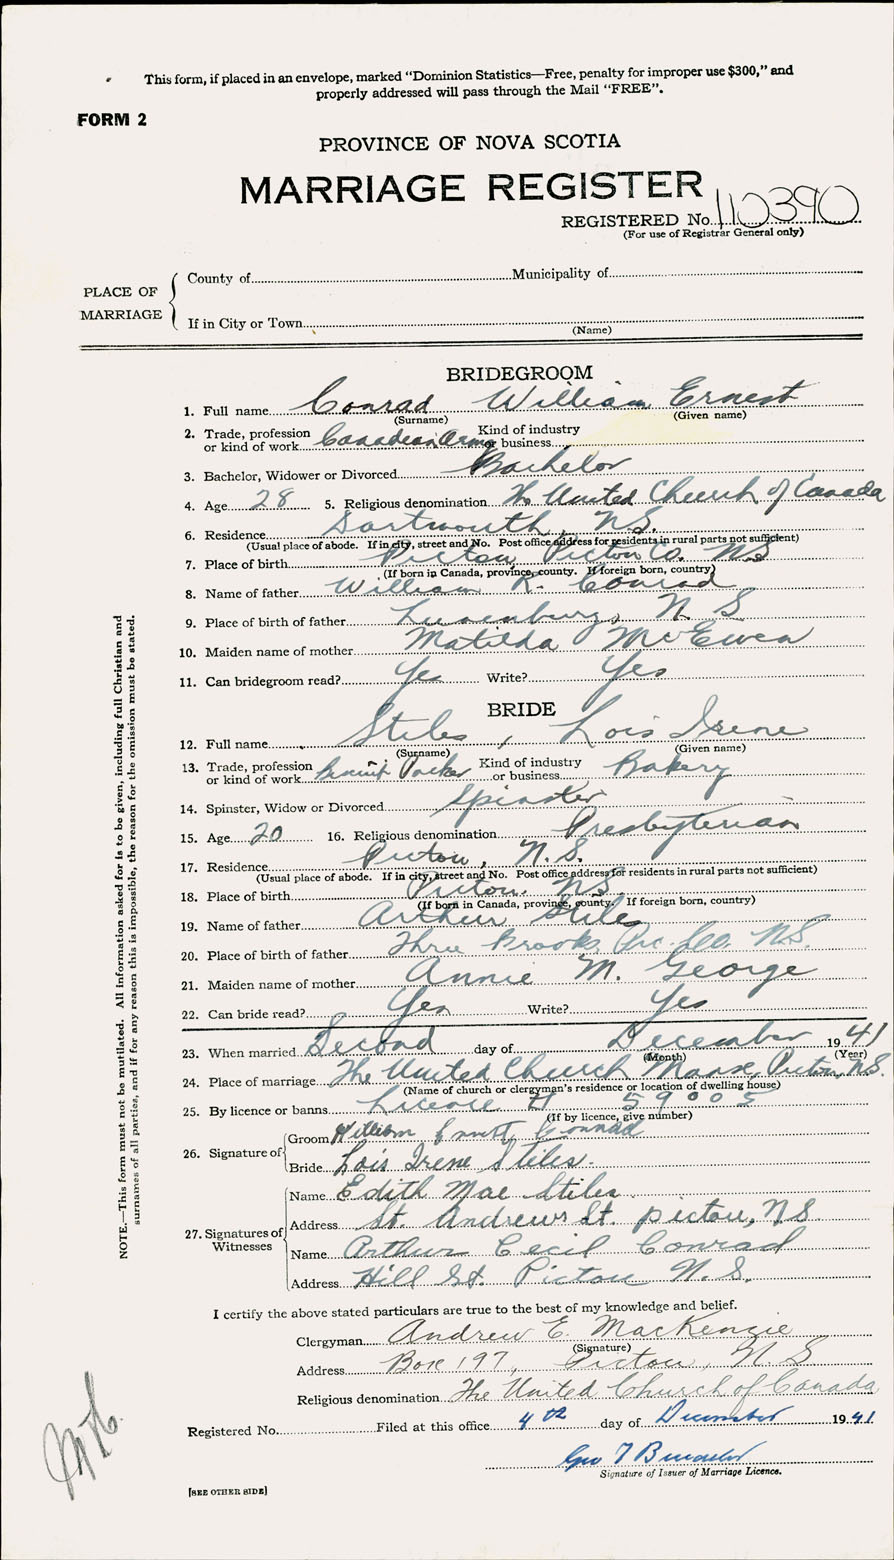 This form, if placed in an envelope, marked "Dominion Statistics—Free, penalty for improper use $300," and
properly addressed will pass through the Mail "FREE".
FORM 2
PROVINCE OF NOVA SCOTIA
MARRIAGE REGISTER
REGISTERED No. 110390
(For use of Registrar General only)
PLACE OF MARRIAGE
County of Municipality of
If in City or Town
(Name)
BRIDEGROOM
1. Full name Conrad William Ernest
(Surname) (Given name)
2. Trade, profession or kind of work Canadian Army Kind of industry or business
3. Bachelor, Widower or Divorced Bachelor
4. Age 28 5. Religious denomination The United Church of Canada
6. Residence Dartmouth, N.S.
(Usual place of abode. If in city, street and No. Post office address for residents in rural parts not sufficient)
7. Place of birth Pictou, Pictou Co. N.S
(If born in Canada, province, county. If foreign born, country)
8. Name of father William R. Conrad
9. Place of birth of father Lunenburg, N S
10. Maiden name of mother Matilda McEwen
11. Can bridegroom read? Yes Write? Yes
BRIDE
12. Full name Stiles, Lois Irene
(Surname) (Given name)
13. Trade, profession or kind of work Packer Kind of industry or business Bakery
14. Spinster, Widow or Divorced Spinster
15. Age 20 16. Religious denomination Presbyterian
17. Residence Pictou, N.S.
(Usual place of abode. If in city, street and No. Post office address for residents in rural parts not sufficient)
18. Place of birth Pictou. N.S.
(If born in Canada, province, county. If foreign born, country)
19. Name of father Arthur Stiles
20. Place of birth of father Three Brooks, Pic. Co. N.S.
21. Maiden name of mother Annie M. George
22. Can bride read? Yes Write? Yes
23. When married Second day of December 1941
(Month) (Year)
24. Place of marriage The United Church Manse, Pictou, N.S.
(Name of church or clergyman's residence or location of dwelling house)
25. By licence or banns Licence # 59005
(If by licence, give number)
26. Signature of
Groom William Ernest Conrad
Bride Lois Irene Stiles.
27. Signatures of Witnesses
Name Edith Mae Stiles
Address St. Andrews St. Pictou, N.S.
Name Arthur Cecil Conrad
Address Hill St. Pictou N.S.
I certify the above stated particulars are true to the best of my knowledge and belief.
Clergyman Andrew E. MacKenzie
(Signature)
Address Box 197, Pictou, N.S
Religious denomination The United Church of Canada
Registered No. Filed at this office 4th day of December 1941
Geo
Signature of Issuer of Marriage Licence.
[SEE OTHER SIDE]
NOTE.—This form must not be mutilated. All Information asked for is to be given, including full Christian and
surnames of all parties, and if for any reason this is impossible, the reason for the omission must be stated.